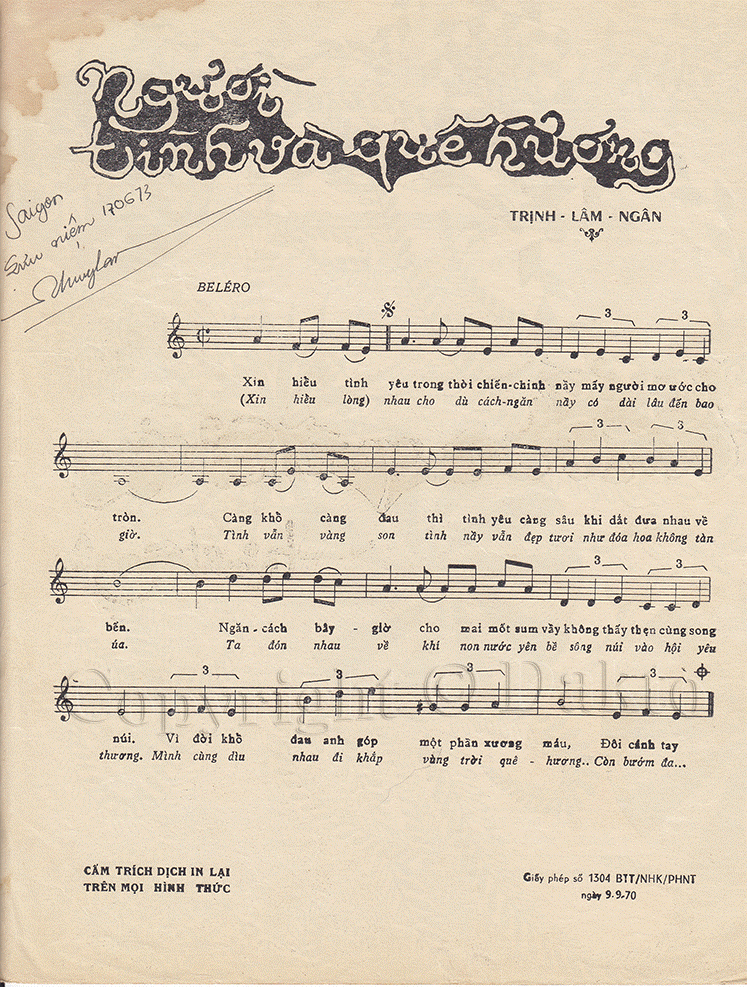 Người
tình và quê hương
TRỊNH - LÂM - NGÂN
Saigon
niệm 170673
BELÉRO
3 3
Xin hiểu tình yêu trong thời chiến-chinh nầy mấy người mơ ước cho
(Xin hiểu lòng) nhau cho dù cách-ngăn nầy có dài lâu đến bao
3 3
tròn. Càng khổ càng đau thì tình yêu càng sâu khi dắt đưa nhau về
giờ. Tình vẫn vàng son tình nầy vẫn đẹp tươi như đóa hoa không tàn
3 3
bến. Ngăn-cách bây-giờ cho mai mốt sum vầy không thấy thẹn cùng song
úa. Ta đón nhau về khi non nước yên bề sông núi vào hội yêu
3 3 3 3
núi. Vì đời khổ đau anh góp một phần xương máu, Đôi cánh tay
thương. Mình cùng dìu nhau đi khắp vùng trời quê - hương.. Còn bướm đa...
Copyright © Dakto
CẤM TRÍCH DỊCH IN LẠI
TRÊN MỌI HÌNH THỨC
Giấy phép số 1304 BTT/NHK/PHNT
ngày 9.9.70